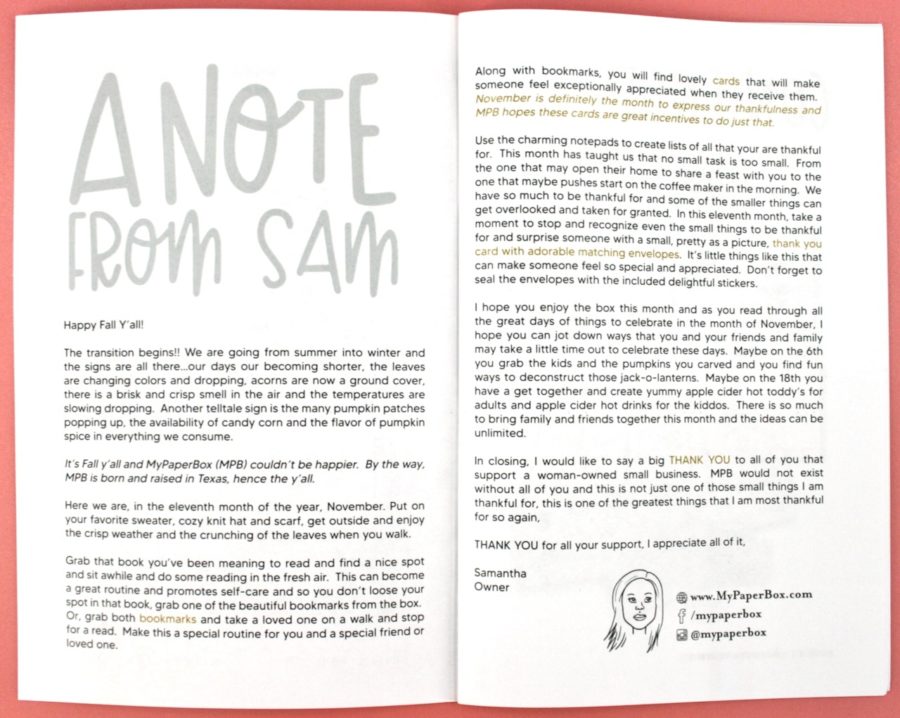 A NOTE
FROM SAM
Happy Fall Y'all!
The transition begins!! We are going from summer into winter and
the signs are all there...our days our becoming shorter, the leaves
are changing colors and dropping, acorns are now a ground cover,
there is a brisk and crisp smell in the air and the temperatures are
slowing dropping. Another telltale sign is the many pumpkin patches
popping up, the availability of candy corn and the flavor of pumpkin
spice in everything we consume.
It's Fall y'all and MyPaperBox (MPB) couldn't be happier. By the way,
MPB is born and raised in Texas, hence the y'all.
Here we are, in the eleventh month of the year, November. Put on
your favorite sweater, cozy knit hat and scarf, get outside and enjoy
the crisp weather and the crunching of the leaves when you walk.
Grab that book you've been meaning to read and find a nice spot
and sit awhile and do some reading in the fresh air. This can become
a great routine and promotes self-care and so you don't loose your
spot in that book, grab one of the beautiful bookmarks from the box.
Or, grab both bookmarks and take a loved one on a walk and stop
for a read. Make this a special routine for you and a special friend or
loved one.
Along with bookmarks, you will find lovely cards that will make
someone feel exceptionally appreciated when they receive them.
November is definitely the month to express our thankfulness and
MPB hopes these cards are great incentives to do just that.
Use the charming notepads to create lists of all that your are thankful
for. This month has taught us that no small task is too small. From
the one that may open their home to share a feast with you to the
one that maybe pushes start on the coffee maker in the morning. We
have so much to be thankful for and some of the smaller things can
get overlooked and taken for granted. In this eleventh month, take a
moment to stop and recognize even the small things to be thankful
for and surprise someone with a small, pretty as a picture, thank you
card with adorable matching envelopes. It's little things like this that
can make someone feel so special and appreciated. Don't forget to
seal the envelopes with the included delightful stickers.
I hope you enjoy the box this month and as you read through all
the great days of things to celebrate in the month of November, I
hope you can jot down ways that you and your friends and family
may take a little time out to celebrate these days. Maybe on the 6th
you grab the kids and the pumpkins you carved and you find fun
ways to deconstruct those jack-o-lanterns. Maybe on the 18th you
have a get together and create yummy apple cider hot toddy's for
adults and apple cider hot drinks for the kiddos. There is so much
to bring family and friends together this month and the ideas can be
unlimited.
In closing, I would like to say a big THANK YOU to all of you that
support a woman-owned small business. MPB would not exist
without all of you and this is not just one of those small things I am
thankful for, this is one of the greatest things that I am most thankful
for so again,
THANK YOU for all your support, I appreciate all of it,
Samantha
Owner
www.MyPaperBox.com
/mypaperbox
@mypaperbox